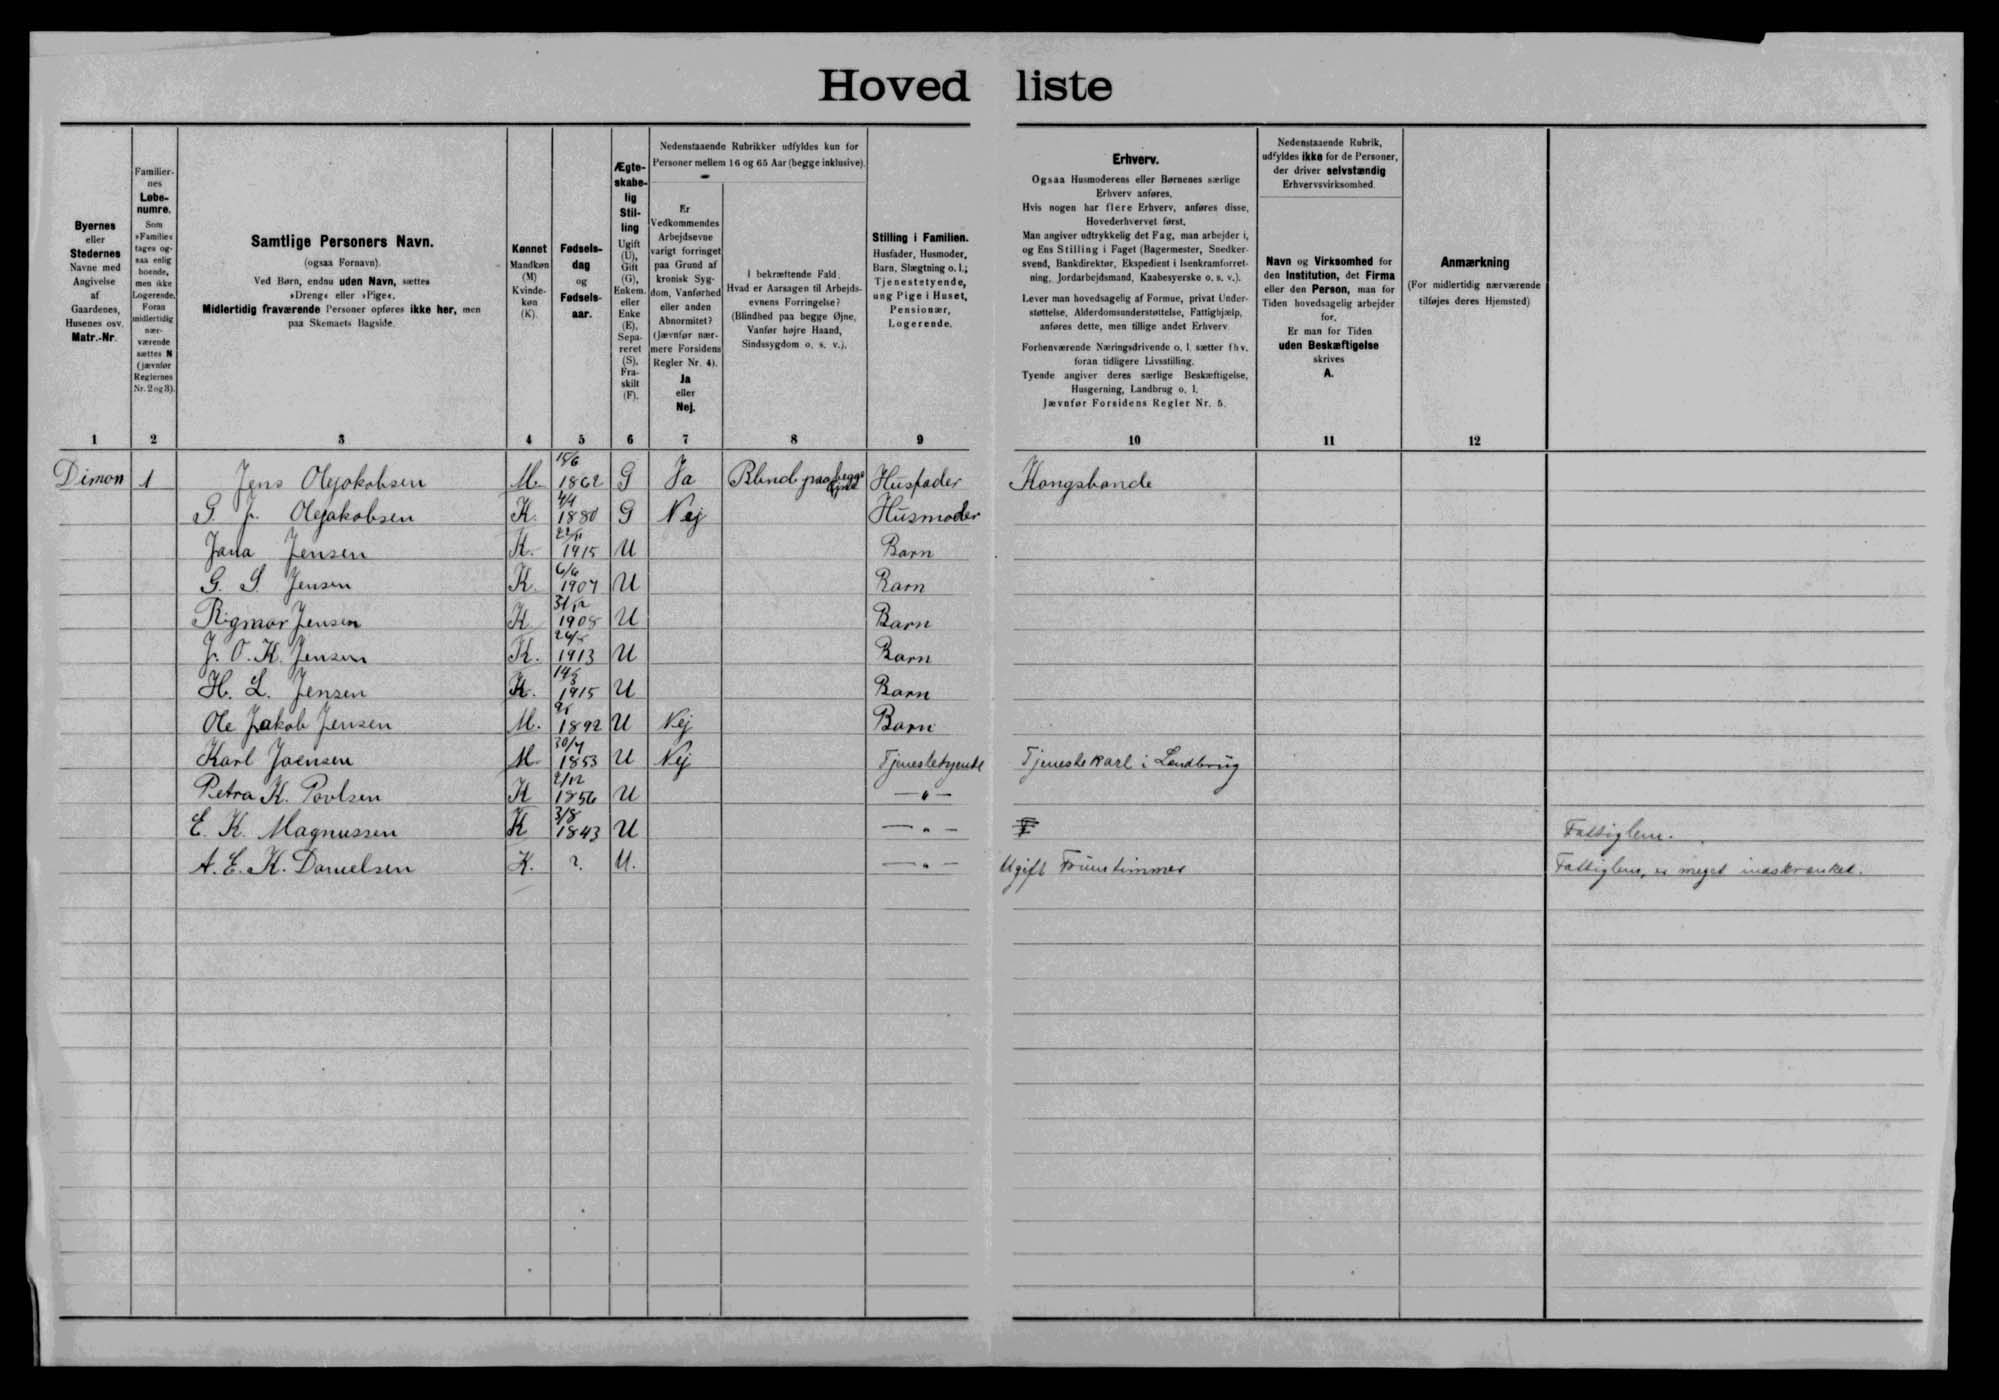 Hovedliste
Byernes
eller
Stedernes
Navne med
Angivelse
af
Gaardenes,
Husenes osv.
Matr.-Nr.
Familier-
nes
Løbe-
numre.
Som
»Familie«
tages og-
saa enlig
boende,
men ikke
Logerende.
Foran
midlertidig
nær-
værende
sættes N
(jævnfør
Reglernes
Nr. 2 og 3).
Samtlige Personers Navn.
(ogsaa Fornavn).
Ved Børn, endnu uden Navn, sættes
»Dreng« eller »Pige«.
Midlertidig fraværende Personer opføres ikke her, men
paa Skemaets Bagside.
Kønnet
Mandkøn
(M)
Kvinde-
køn
(K).
Fødsels-
dag
og
Fødsels-
aar.
Ægte-
skabe-
lig
Stil-
ling
Ugift
(U),
Gift
(G),
Enkem.
eller
Enke
(E),
Sepa-
reret
(S),
Fra-
skilt
(F).
Nedenstaaende Rubrikker udfyldes kun for
Personer mellem 16 og 65 Aar (begge inklusive).
Er
Vedkommendes
Arbejdsevne
varigt forringet
paa Grund af
kronisk Syg-
dom, Vanførhed
eller anden
Abnormitet?
(Jævnfør nær-
mere Forsidens
Regler Nr. 4).
Ja
eller
Nej.
I bekræftende Fald.
Hvad er Aarsagen til Arbejds-
evnens Forringelse?
(Blindhed paa begge Øjne,
Vanfør højre Haand,
Sindssygdom o. s. v.).
Stilling i Familien.
Husfader, Husmoder,
Barn, Slægtning o. l.;
Tjenestetyende,
ung Pige i Huset,
Pensionær,
Logerende.
Erhverv.
Ogsaa Husmoderens eller Børnenes særlige
Erhverv anføres.
Hvis nogen har flere Erhverv, anføres disse,
Hovederhvervet først.
Man angiver udtrykkelig det Fag, man arbejder i,
og Ens Stilling i Faget (Bagermester, Snedker-
svend, Bankdirektør, Ekspedient i Isenkramforret-
ning, Jordarbejdsmand, Kaabesyerske o. s. v.).
Lever man hovedsagelig af Formue, privat Under-
støttelse, Alderdomsunderstøttelse, Fattighjælp,
anføres dette, men tillige andet Erhverv.
Forhenværende Næringsdrivende o. l. sætter fhv.
foran tidligere Livsstilling.
Tyende angiver deres særlige Beskæftigelse,
Husgerning, Landbrug o. l.
Jævnfør Forsidens Regler Nr. 5.
Nedenstaaende Rubrik,
udfyldes ikke for de Personer,
der driver selvstændig
Erhvervsvirksomhed.
Navn og Virksomhed for
den Institution, det Firma
eller den Person, man for
Tiden hovedsagelig arbejder
for.
Er man for Tiden
uden Beskæftigelse
skrives
A.
Anmærkning
(For midlertidig nærværende
tilføjes deres Hjemsted)
1 2 3 4 5 6 7 8 9 10 11 12
Dimon 1 Jens Olejakobsen M. 15/6 1862 G Ja Blind paa begge Øjne Husfader Kongsbonde
G. J. Olejakobsen K. 4/4 1880 G Nej Husmoder
Jana Jensen K. 1915 U Barn
G. S. Jensen K. 6/6 1907 U Barn
Rigmor Jensen K. 31/12 1908 U Barn
J. O. K. Jensen K. 1913 U Barn
H. L. Jensen K. 1915 U Barn
Ole Jakob Jensen M. 1892 U Nej Barn
Karl Joensen M. 1853 U Nej Tjenestetyende Tjenestekarl i Landbrug
Petra K. Poulsen K 2/12 1856 U — " —
E. K. Magnussen K 3/8 1843 U — " — Fattiglem.
A. E. K. Danielsen K. ? U. — " — Ugift Fruentimmer Fattiglem, er meget indskrænket.